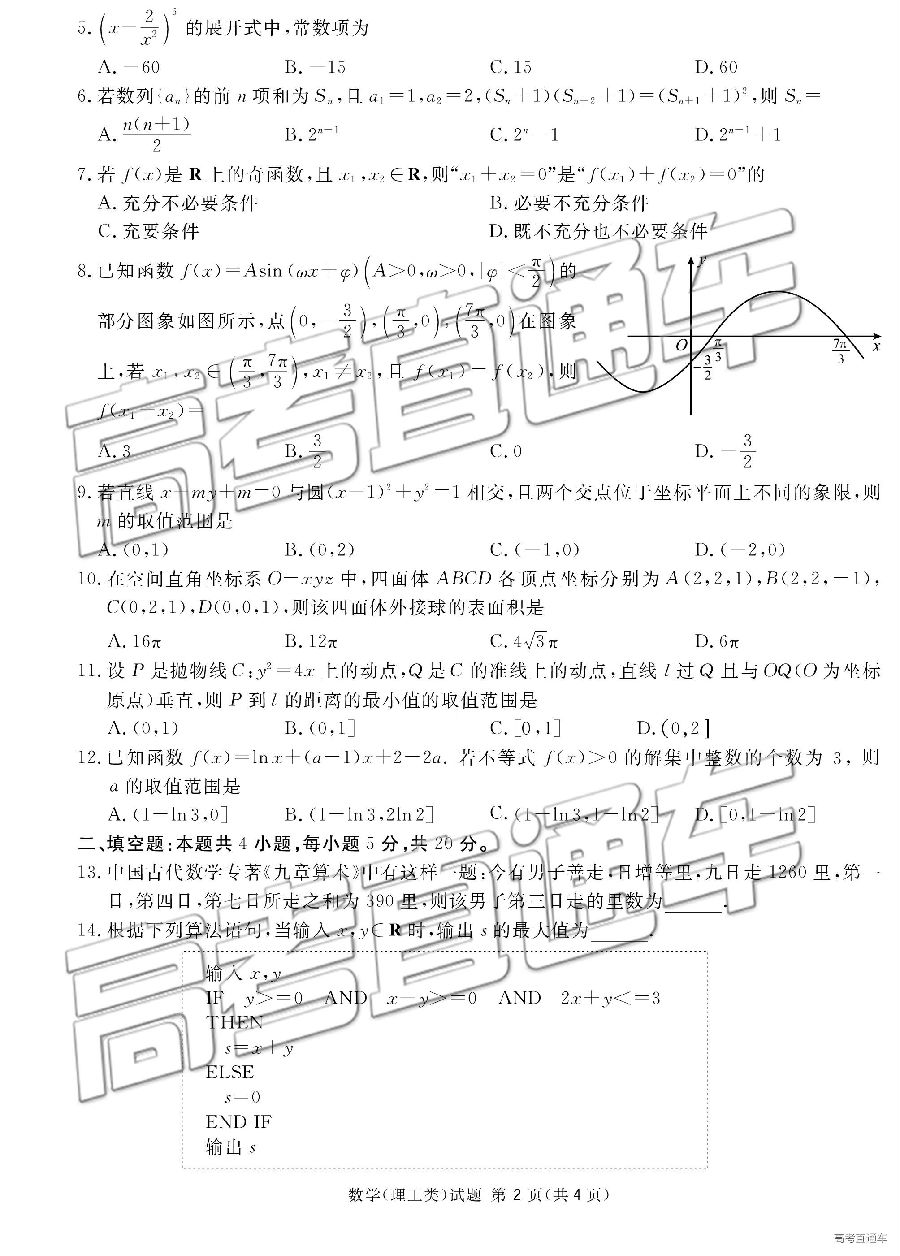 5. (x-2/x²)⁵ 的展开式中,常数项为
A. -60 B. -15 C. 15 D. 60
6. 若数列{aₙ}的前 n 项和为 Sₙ,且 a₁=1,a₂=2,(Sₙ+1)(Sₙ₊₂+1)=(Sₙ₊₁+1)²,则 Sₙ=
A. n(n+1)/2 B. 2ⁿ⁻¹ C. 2ⁿ-1 D. 2ⁿ⁻¹+1
7. 若 f(x)是 R 上的奇函数,且 x₁,x₂∈R,则“x₁+x₂=0”是“f(x₁)+f(x₂)=0”的
A. 充分不必要条件 B. 必要不充分条件
C. 充要条件 D. 既不充分也不必要条件
8. 已知函数 f(x)=Asin(ωx-φ)(A>0,ω>0,|φ|<π/2)的
部分图象如图所示,点(0,-3/2),(π/3,0),(7π/3,0)在图象
上,若 x₁,x₂∈(π/3,7π/3),x₁≠x₂,且 f(x₁)=f(x₂),则
f(x₁+x₂)=
y
O π/3 7π/3 x
-3/2
A. 3 B. 3/2 C. 0 D. -3/2
9. 若直线 x+my+m=0 与圆(x-1)²+y²=1 相交,且两个交点位于坐标平面上不同的象限,则
m 的取值范围是
A. (0,1) B. (0,2) C. (-1,0) D. (-2,0)
10. 在空间直角坐标系 O-xyz 中,四面体 ABCD 各顶点坐标分别为 A(2,2,1),B(2,2,-1),
C(0,2,1),D(0,0,1),则该四面体外接球的表面积是
A. 16π B. 12π C. 4√3π D. 6π
11. 设 P 是抛物线 C:y²=4x 上的动点,Q 是 C 的准线上的动点,直线 l 过 Q 且与 OQ(O 为坐标
原点)垂直,则 P 到 l 的距离的最小值的取值范围是
A. (0,1) B. (0,1] C. [0,1] D. (0,2]
12. 已知函数 f(x)=lnx+(a-1)x+2-2a. 若不等式 f(x)>0 的解集中整数的个数为 3, 则
a 的取值范围是
A. (1-ln3,0] B. (1-ln3,2ln2] C. (1-ln3,1-ln2] D. [0,1-ln2]
二、填空题:本题共 4 小题,每小题 5 分,共 20 分。
13. 中国古代数学专著《九章算术》中有这样一题:今有男子善走,日增等里,九日走 1260 里,第一
日,第四日,第七日所走之和为 390 里,则该男子第三日走的里数为______.
14. 根据下列算法语句,当输入 x,y∈R 时,输出 s 的最大值为______.
输入 x,y
IF y>=0 AND x-y>=0 AND 2x+y<=3
THEN
s=x+y
ELSE
s=0
END IF
输出 s
数学(理工类)试题 第 2 页(共 4 页)
高考直通车
高考直通车
高考直通车